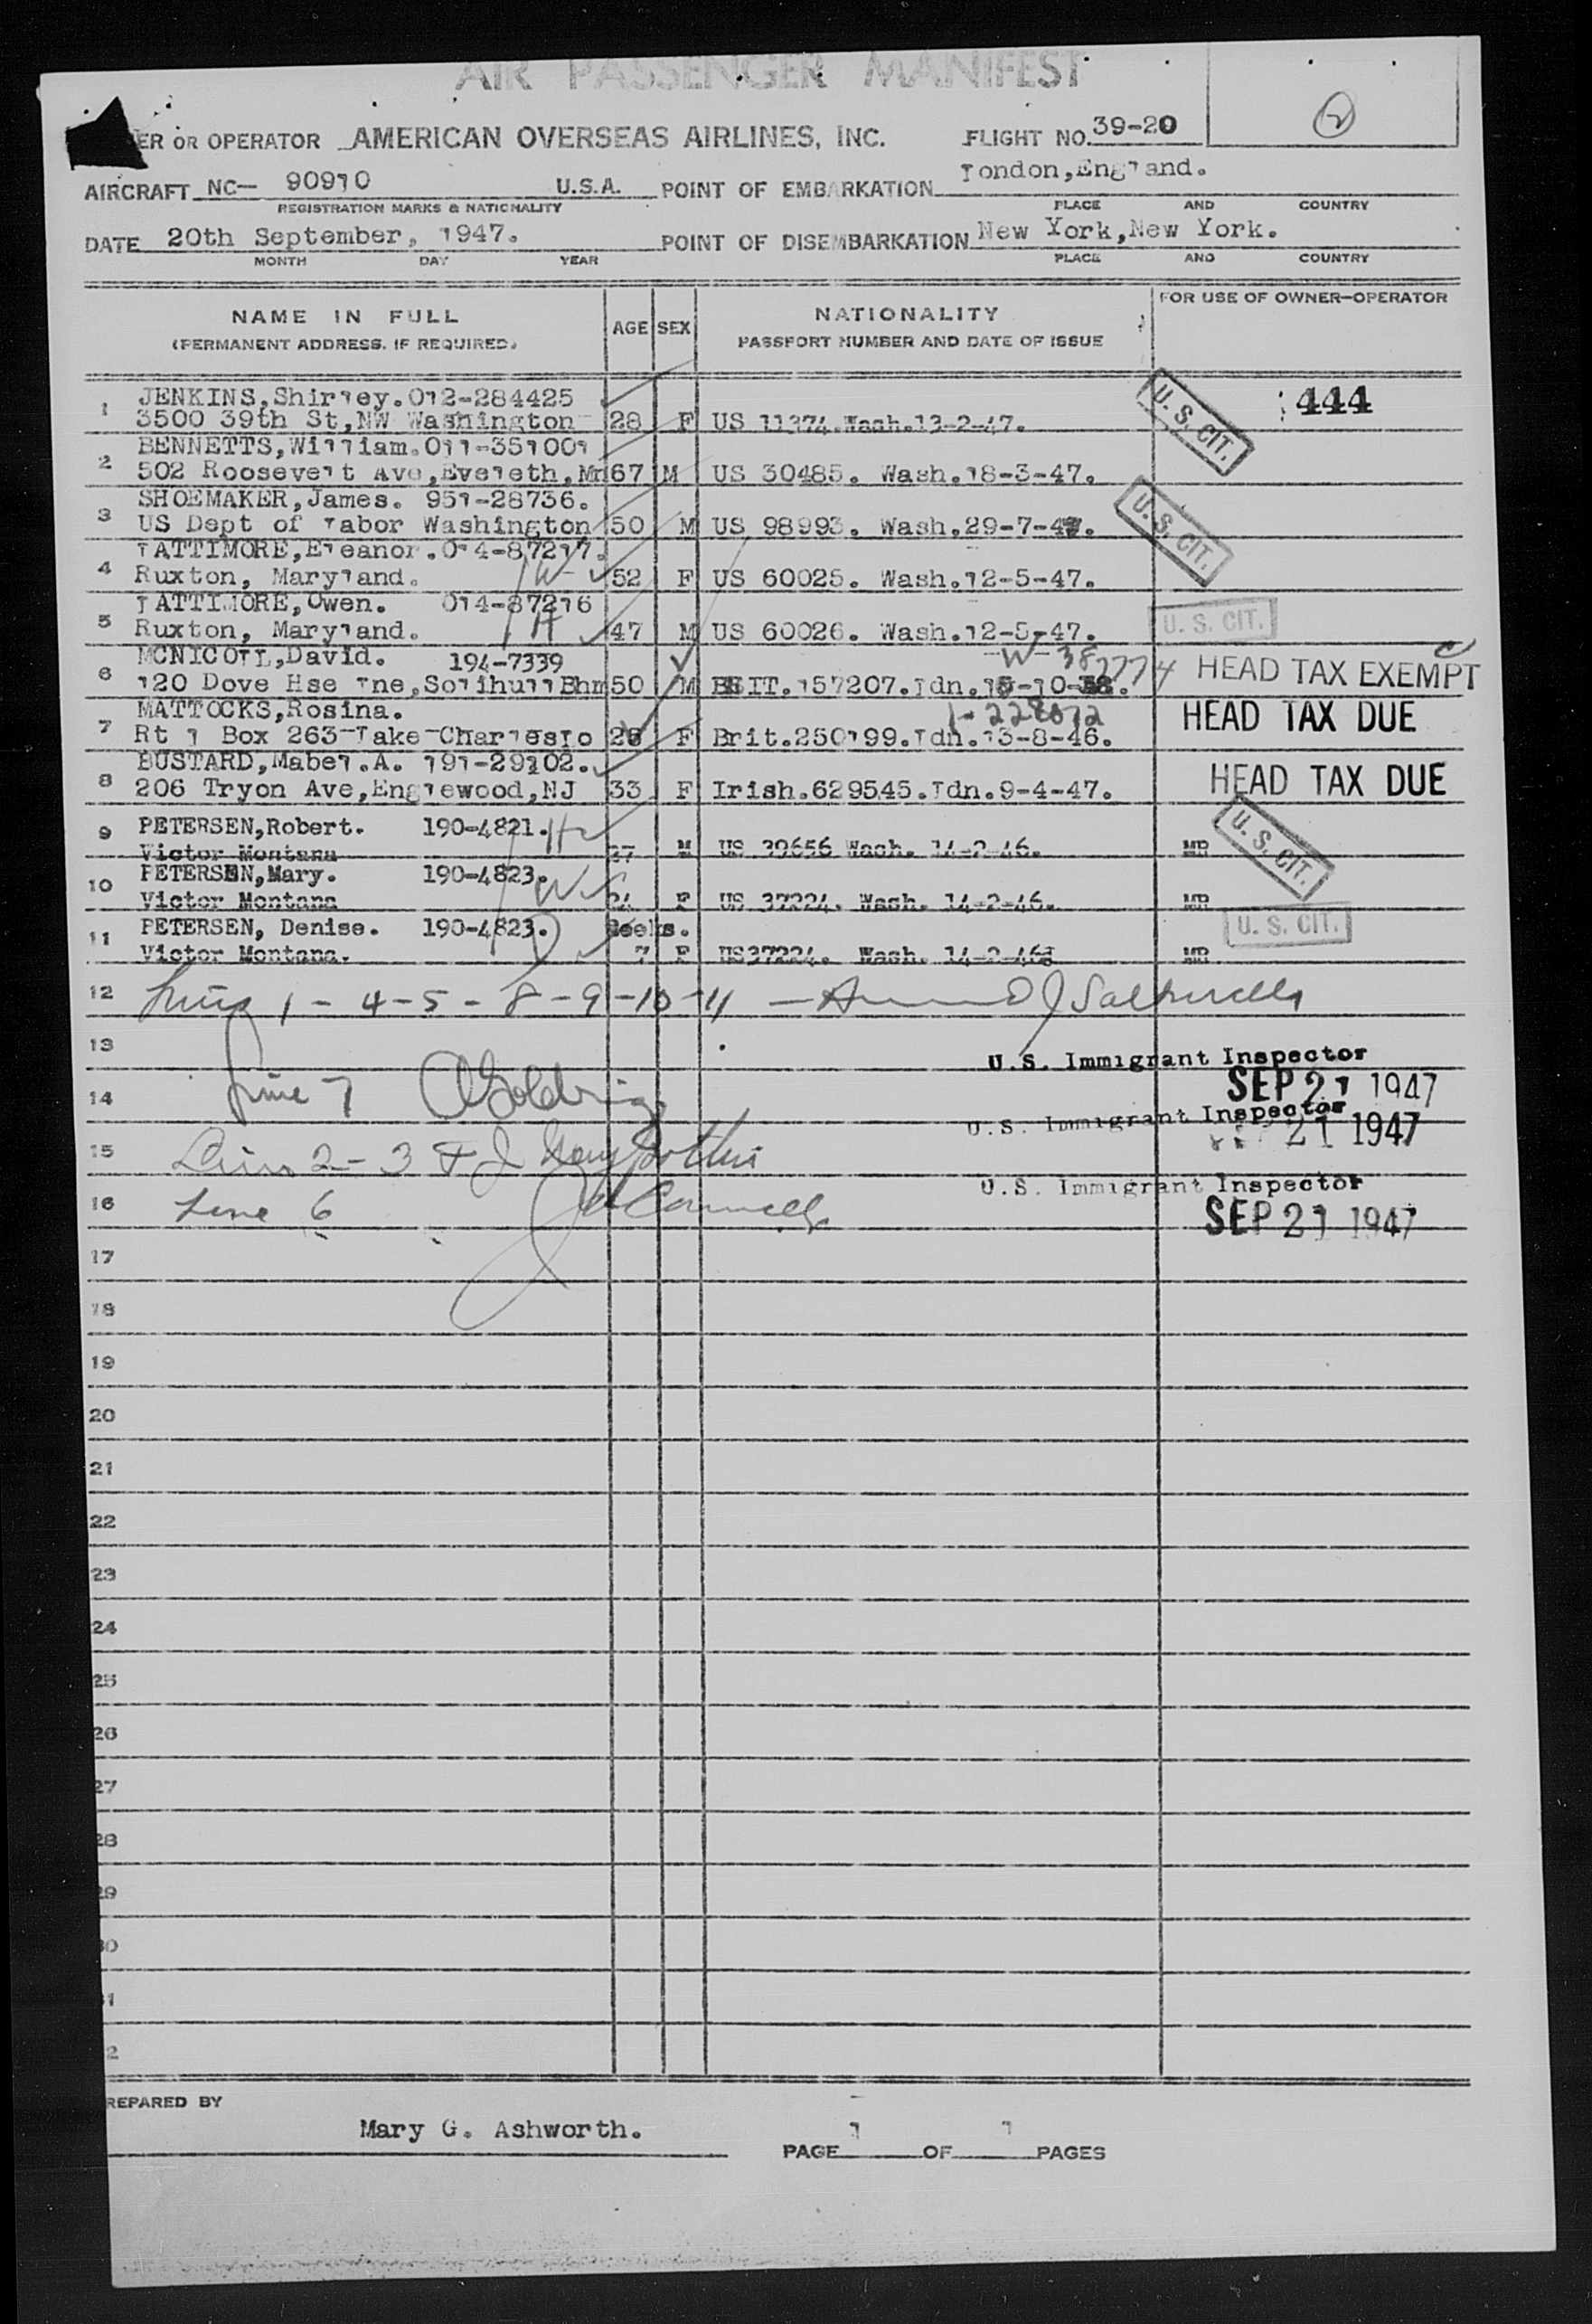 AIR PASSENGER MANIFEST
ER OR OPERATOR AMERICAN OVERSEAS AIRLINES, INC. FLIGHT NO. 39-20
2
AIRCRAFT NC- 90910 U.S.A. POINT OF EMBARKATION London, England.
REGISTRATION MARKS & NATIONALITY PLACE AND COUNTRY
DATE 20th September, 1947. POINT OF DISEMBARKATION New York, New York.
MONTH DAY YEAR PLACE AND COUNTRY
NAME IN FULL AGE SEX NATIONALITY FOR USE OF OWNER-OPERATOR
(PERMANENT ADDRESS, IF REQUIRED) PASSPORT NUMBER AND DATE OF ISSUE
1 JENKINS, Shirley. 012-284425 444
3500 39th St, NW Washington 28 F US 11374. Wash. 13-2-47. U. S. CIT.
2 BENNETTS, William. 011-351001
502 Roosevelt Ave, Eveleth, Mn 67 M US 30485. Wash. 18-3-47.
3 SHOEMAKER, James. 951-28736.
US Dept of Labor Washington 50 M US 98993. Wash. 29-7-47. U. S. CIT.
4 LATTIMORE, Eleanor. 014-87217.
Ruxton, Maryland. W 52 F US 60025. Wash. 12-5-47.
5 LATTIMORE, Owen. 014-87216
Ruxton, Maryland. H 47 M US 60026. Wash. 12-5-47. U. S. CIT.
6 MCNICOLL, David. 194-7339 W-387774 HEAD TAX EXEMPT
120 Dove Hse Lne, Solihull Bhm 50 M BRIT. 157207. Ldn.
7 MATTOCKS, Rosina. 1-228672 HEAD TAX DUE
Rt 1 Box 263 Lake Charles Lo F Brit. 250199. Ldn. 13-8-46.
8 BUSTARD, Mabel. A. 191-29102. HEAD TAX DUE
206 Tryon Ave, Englewood, NJ 33 F Irish. 629545. Ldn. 9-4-47.
9 PETERSEN, Robert. 190-4821. H
Victor Montana 27 M US 39656 Wash. 14-2-46. MR U. S. CIT.
10 PETERSEN, Mary. 190-4823. W
Victor Montana 24 F US 37224. Wash. 14-2-46. MR
11 PETERSEN, Denise. 190-4823. D Weeks. U. S. CIT.
Victor Montana. 7 F US37224. Wash. 14-2-46 MR
12 Lines 1 - 4 - 5 - 8 - 9 - 10 - 11
13 U.S. Immigrant Inspector
SEP 21 1947
14 Line 7
U.S. Immigrant Inspector
21 1947
15 Lines 2 - 3
U.S. Immigrant Inspector
16 Line 6 SEP 21 1947
17
18
19
20
21
22
23
24
25
26
27
28
29
30
1
2
REPARED BY
Mary G. Ashworth. PAGE 1 OF 1 PAGES